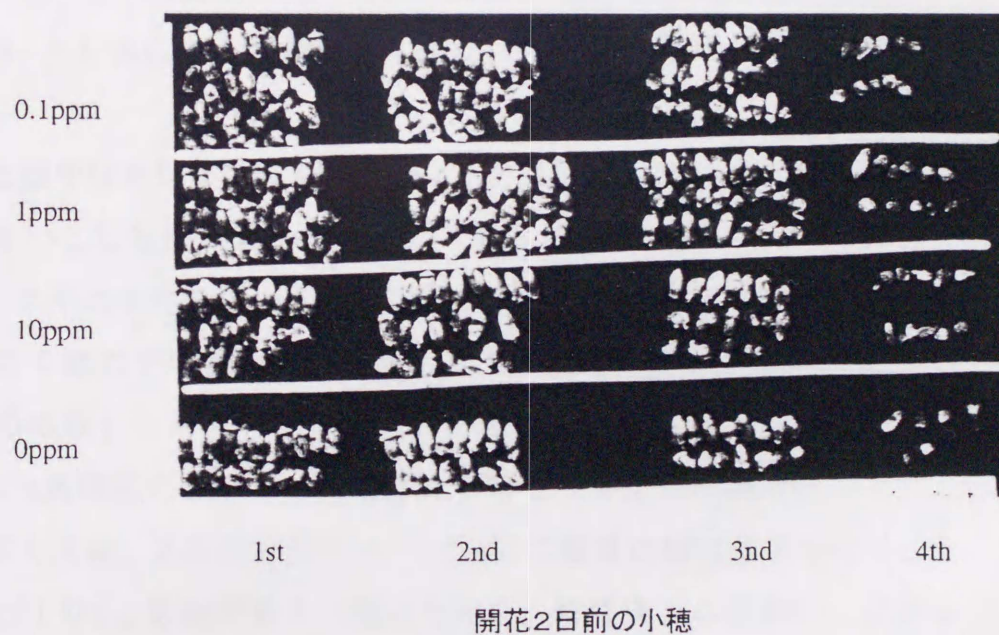 0.1ppm
1ppm
10ppm
0ppm
1st 2nd 3nd 4th
開花2日前の小穂